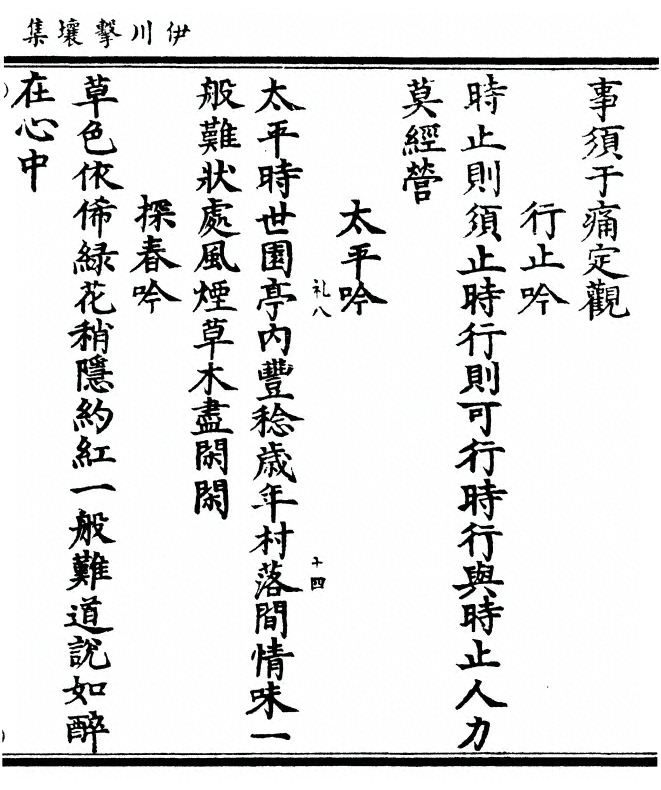 集壤擊川伊
事須于痛定觀
行止吟
時止則須止時行則可行時行與時止人力
莫經營
太平吟
礼八
十四
太平時世園亭內豐稔歲年村落間情味一
般難狀處風煙草木盡閑閑
探春吟
草色依俙綠花稍隱約紅一般難道說如醉
在心中